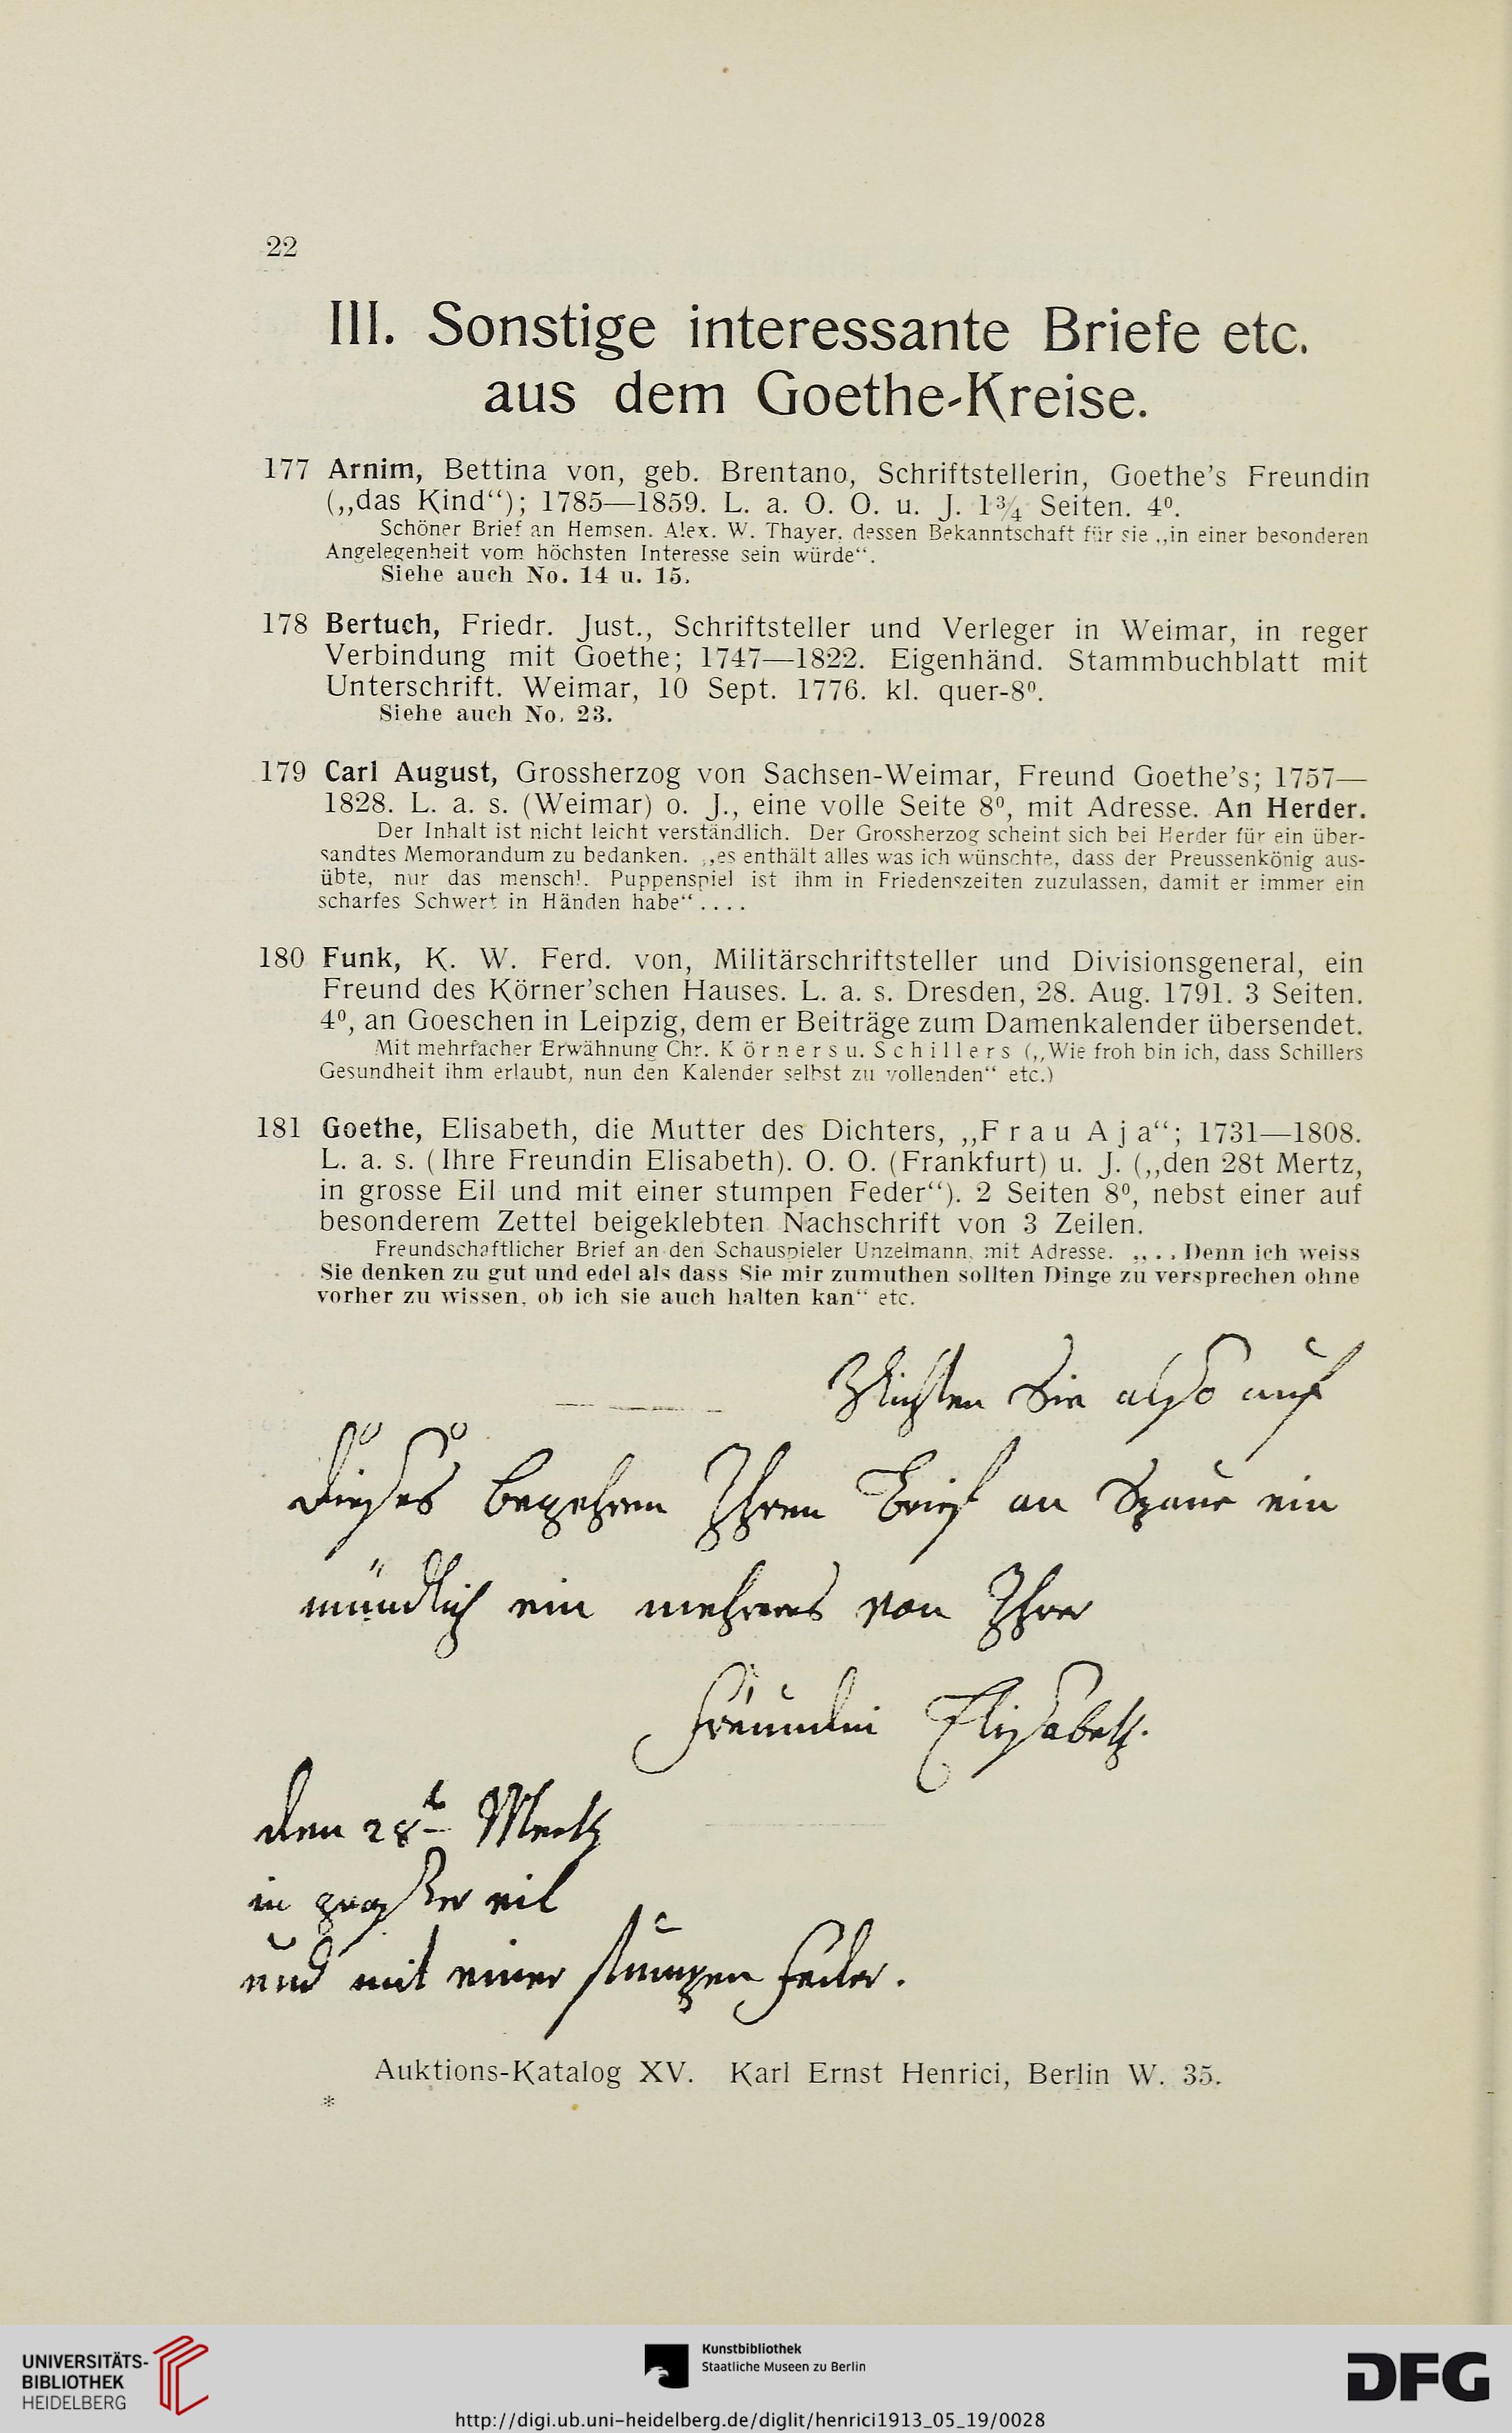 22
III. Sonstige interessante Briefe etc.
aus dem Goethe-Kreise.
177 Arnim, Bettina von, geb. Brentano, Schriftstellerin, Goethe's Freundin
(„das Kind“); 1785—1859. L. a. O. O. u. J. 1¾ Seiten. 4⁰.
Schöner Brief an Hemsen. Alex. W. Thayer, dessen Bekanntschaft für sie „in einer besonderen
Angelegenheit vom höchsten Interesse sein würde“.
Siehe auch No. 14 u. 15.
178 Bertuch, Friedr. Just., Schriftsteller und Verleger in Weimar, in reger
Verbindung mit Goethe; 1747—1822. Eigenhänd. Stammbuchblatt mit
Unterschrift. Weimar, 10 Sept. 1776. kl. quer-8⁰.
Siehe auch No. 23.
179 Carl August, Grossherzog von Sachsen-Weimar, Freund Goethe's; 1757—
1828. L. a. s. (Weimar) o. J., eine volle Seite 8⁰, mit Adresse. An Herder.
Der Inhalt ist nicht leicht verständlich. Der Grossherzog scheint sich bei Herder für ein über-
sandtes Memorandum zu bedanken. „es enthält alles was ich wünschte, dass der Preussenkönig aus-
übte, nur das menschl. Puppenspiel ist ihm in Friedenszeiten zuzulassen, damit er immer ein
scharfes Schwert in Händen habe“ ....
180 Funk, K. W. Ferd. von, Militärschriftsteller und Divisionsgeneral, ein
Freund des Körner'schen Hauses. L. a. s. Dresden, 28. Aug. 1791. 3 Seiten.
4⁰, an Goeschen in Leipzig, dem er Beiträge zum Damenkalender übersendet.
Mit mehrfacher Erwähnung Chr. Körners u. Schillers („Wie froh bin ich, dass Schillers
Gesundheit ihm erlaubt, nun den Kalender selbst zu vollenden“ etc.)
181 Goethe, Elisabeth, die Mutter des Dichters, „Frau Aja“; 1731—1808.
L. a. s. (Ihre Freundin Elisabeth). O. O. (Frankfurt) u. J. („den 28t Mertz,
in grosse Eil und mit einer stumpen Feder“). 2 Seiten 8⁰, nebst einer auf
besonderem Zettel beigeklebten Nachschrift von 3 Zeilen.
Freundschaftlicher Brief an den Schauspieler Unzelmann, mit Adresse. „... Denn ich weiss
Sie denken zu gut und edel als dass Sie mir zumuthen sollten Dinge zu versprechen ohne
vorher zu wissen, ob ich sie auch halten kan“ etc.
Sie also auf
dießes begehren Ihren Brief an ein
mündlich ein mehreres von Ihrer
Freundin Elisabeth.
den 28t Mertz
in großer eil
und mit einer stumpen Feder.
Auktions-Katalog XV. Karl Ernst Henrici, Berlin W. 35.
*
UNIVERSITÄTS-
BIBLIOTHEK
HEIDELBERG
Kunstbibliothek
Staatliche Museen zu Berlin
DFG
http://digi.ub.uni-heidelberg.de/diglit/henrici1913_05_19/0028